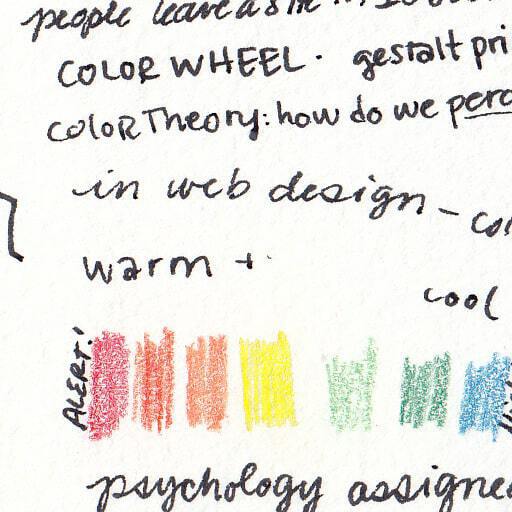 people leave a site in
COLOR WHEEL. gestalt pri
ColoR Theory: how do we perc
in web design - col
warm +
cool
ALERT!
psychology assigne